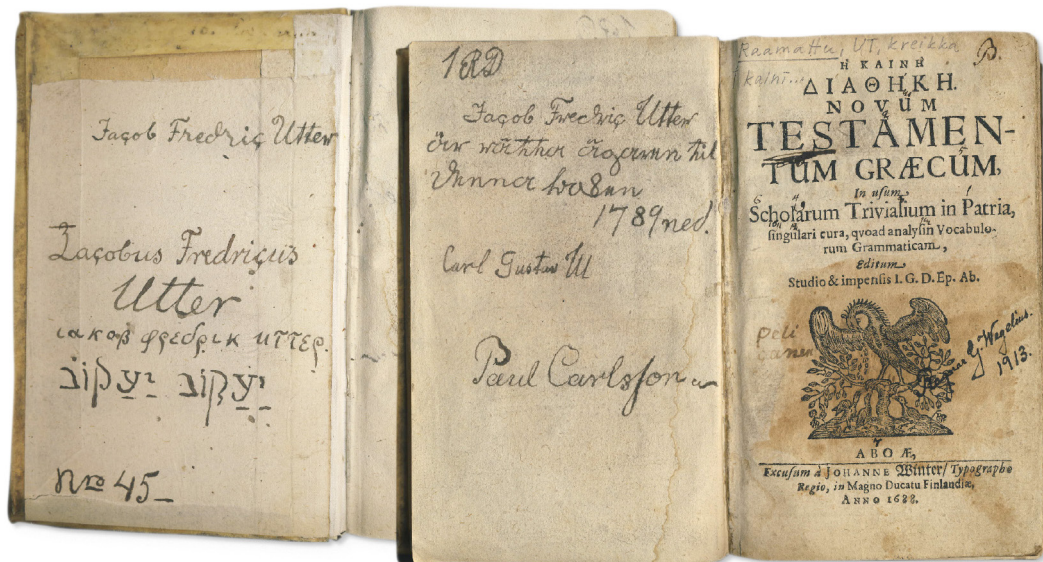 Jacob Fredric Utter
Iacobus Fredricus
Utter
ιακοβ φρεδρικ υττερ.
יַעֲקוֹב יַעֲקוֹב
Nro 45
1 RD
Jacob Fredric Utter
är rätta ägaren til
denna boken
1789 ned.
Carl Gustav U
Paul Carlsson
Raamattu, UT, kreikka
kaini...
B.
Η ΚΑΙΝΗ
ΔΙΑΘΗΚΗ.
NOVUM
TESTAMEN-
TUM GRÆCUM,
In usum
Scholarum Trivialium in Patria,
singulari cura, qvoad analysin Vocabulo-
rum Grammaticam,
Editum
Studio & impensis I. G. D. Ep. Ab.
Peli
canen
G Wegelius.
1913.
ABOÆ,
Excusum à JOHANNE Winter/ Typographo
Regio, in Magno Ducatu Finlandiæ,
ANNO 1688.